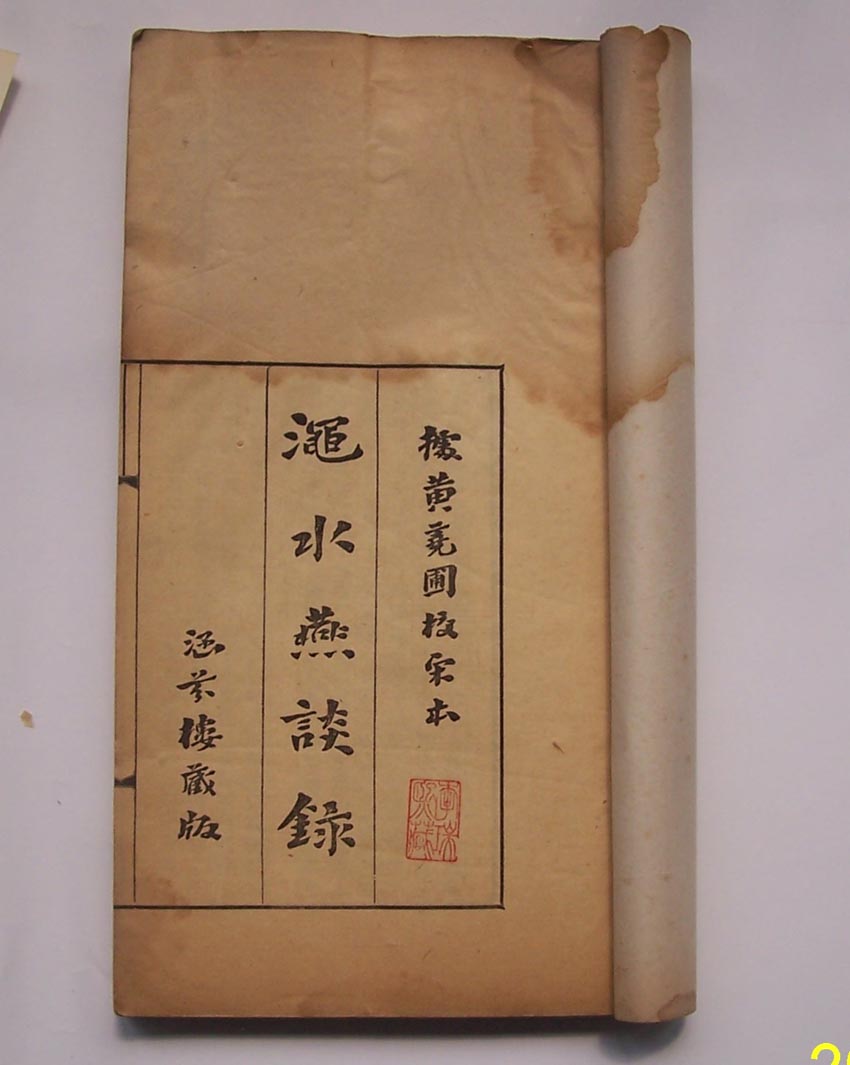 據黄蕘圃校宋本
澠水燕談録
涵芬樓藏版